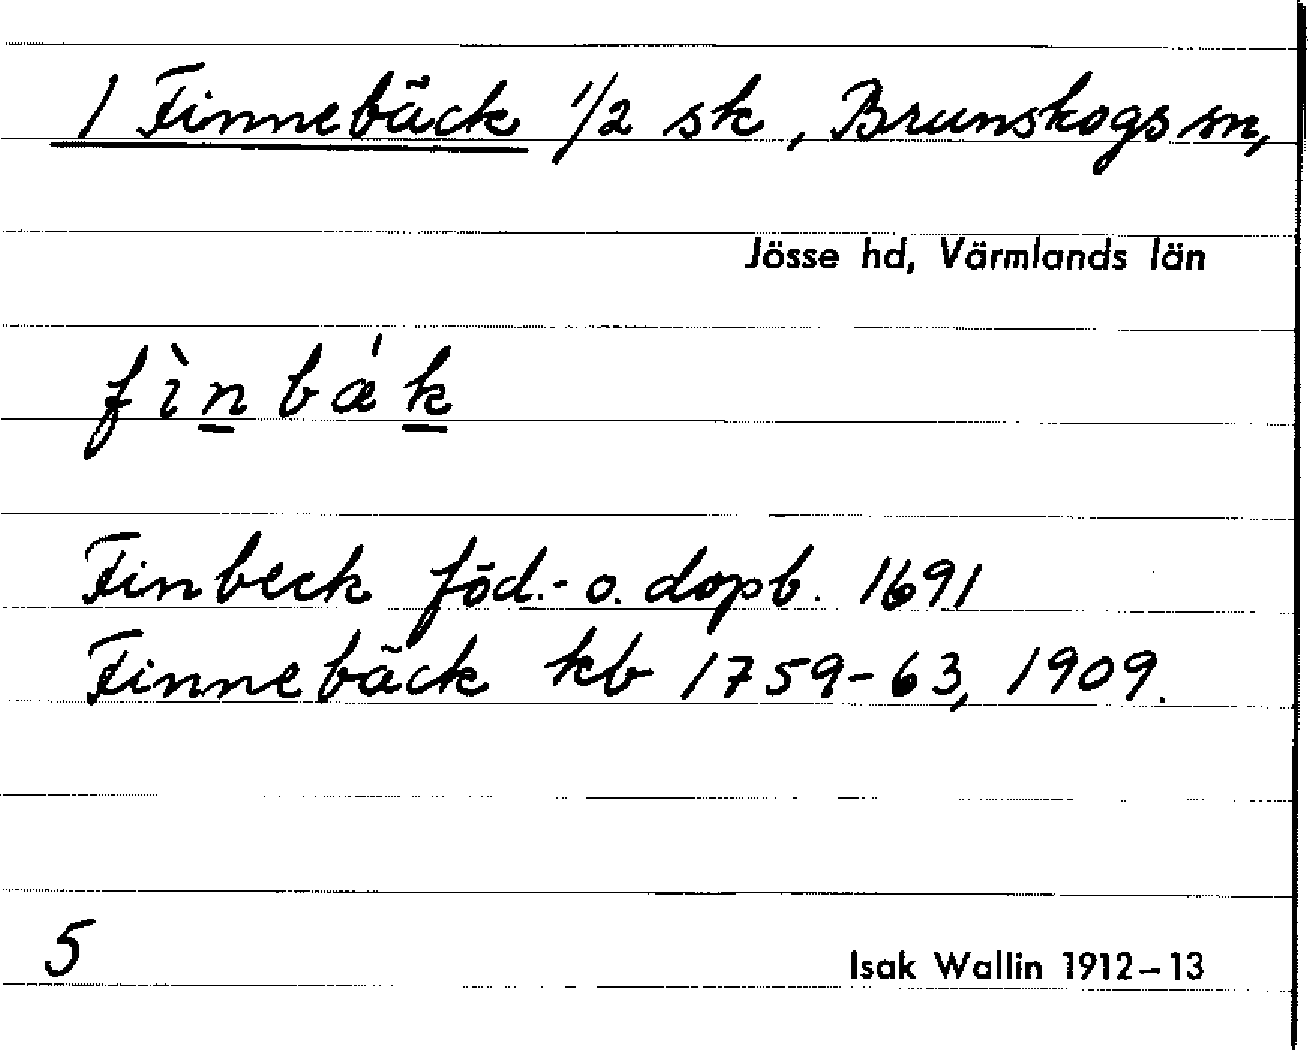 1 Finnebäck 1/2 sk, Brunskogs sn,
Jösse hd, Värmlands län
fìnbǽk
Finbeck föd.- o. dopb. 1691
Finnebäck kb 1759-63, 1909.
5
Isak Wallin 1912-13